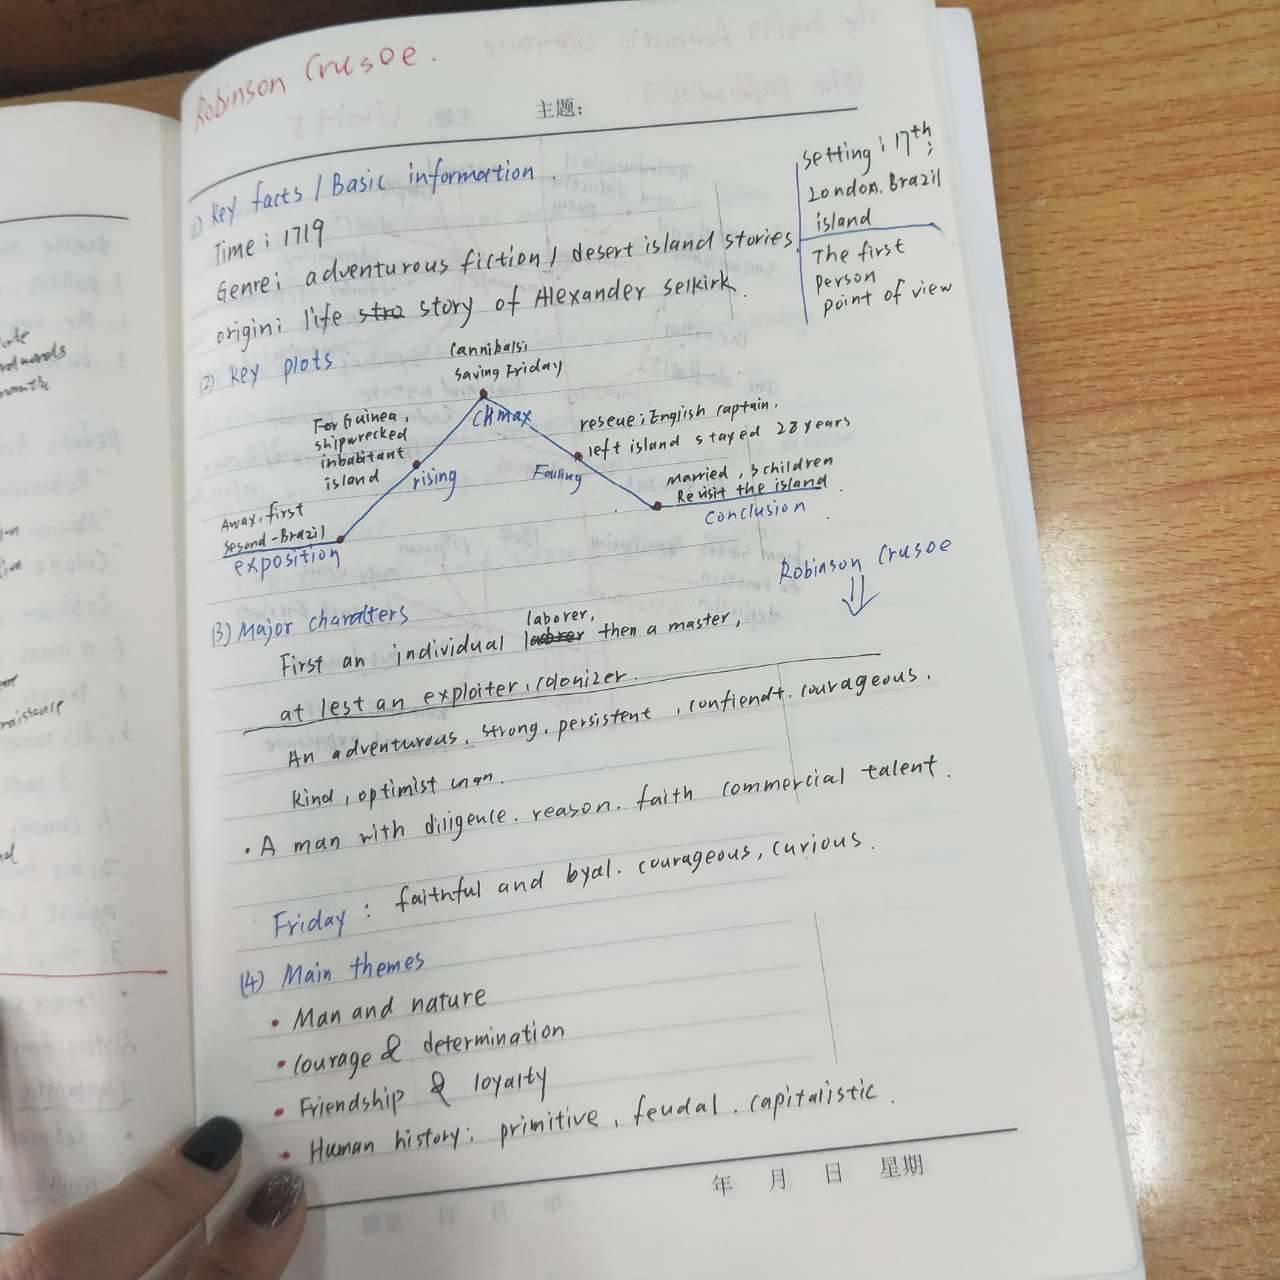 Robinson Crusoe.
主题:
(1) Key facts / Basic information.
Time: 1719
Genre: adventurous fiction / desert island stories.
origin: life stro story of Alexander Selkirk.
setting: 17th;
London. Brazil
island
The first
person
point of view
(2) Key plots
Cannibals;
saving Friday
Climax
For Guinea,
shipwrecked
inbabitant
island
rising
reseue: English captain.
left island stayed 28 years
Falling
married, 3 children
Revisit the island
conclusion
Away, first
Sesond-Brazil
exposition
Robinson Crusoe
(3) Major charatters
laborer,
First an individual then a master,
at lest an exploiter, colonizer.
An adventurous, strong, persistent, confiendt. courageous.
kind, optimist man.
· A man with diligence. reason. faith commercial talent.
Friday: faithful and loyal. courageous, curious.
(4) Main themes
• Man and nature
• courage & determination
• Friendship & loyalty
• Human history: primitive, feudal. capitalistic.
年 月 日 星期